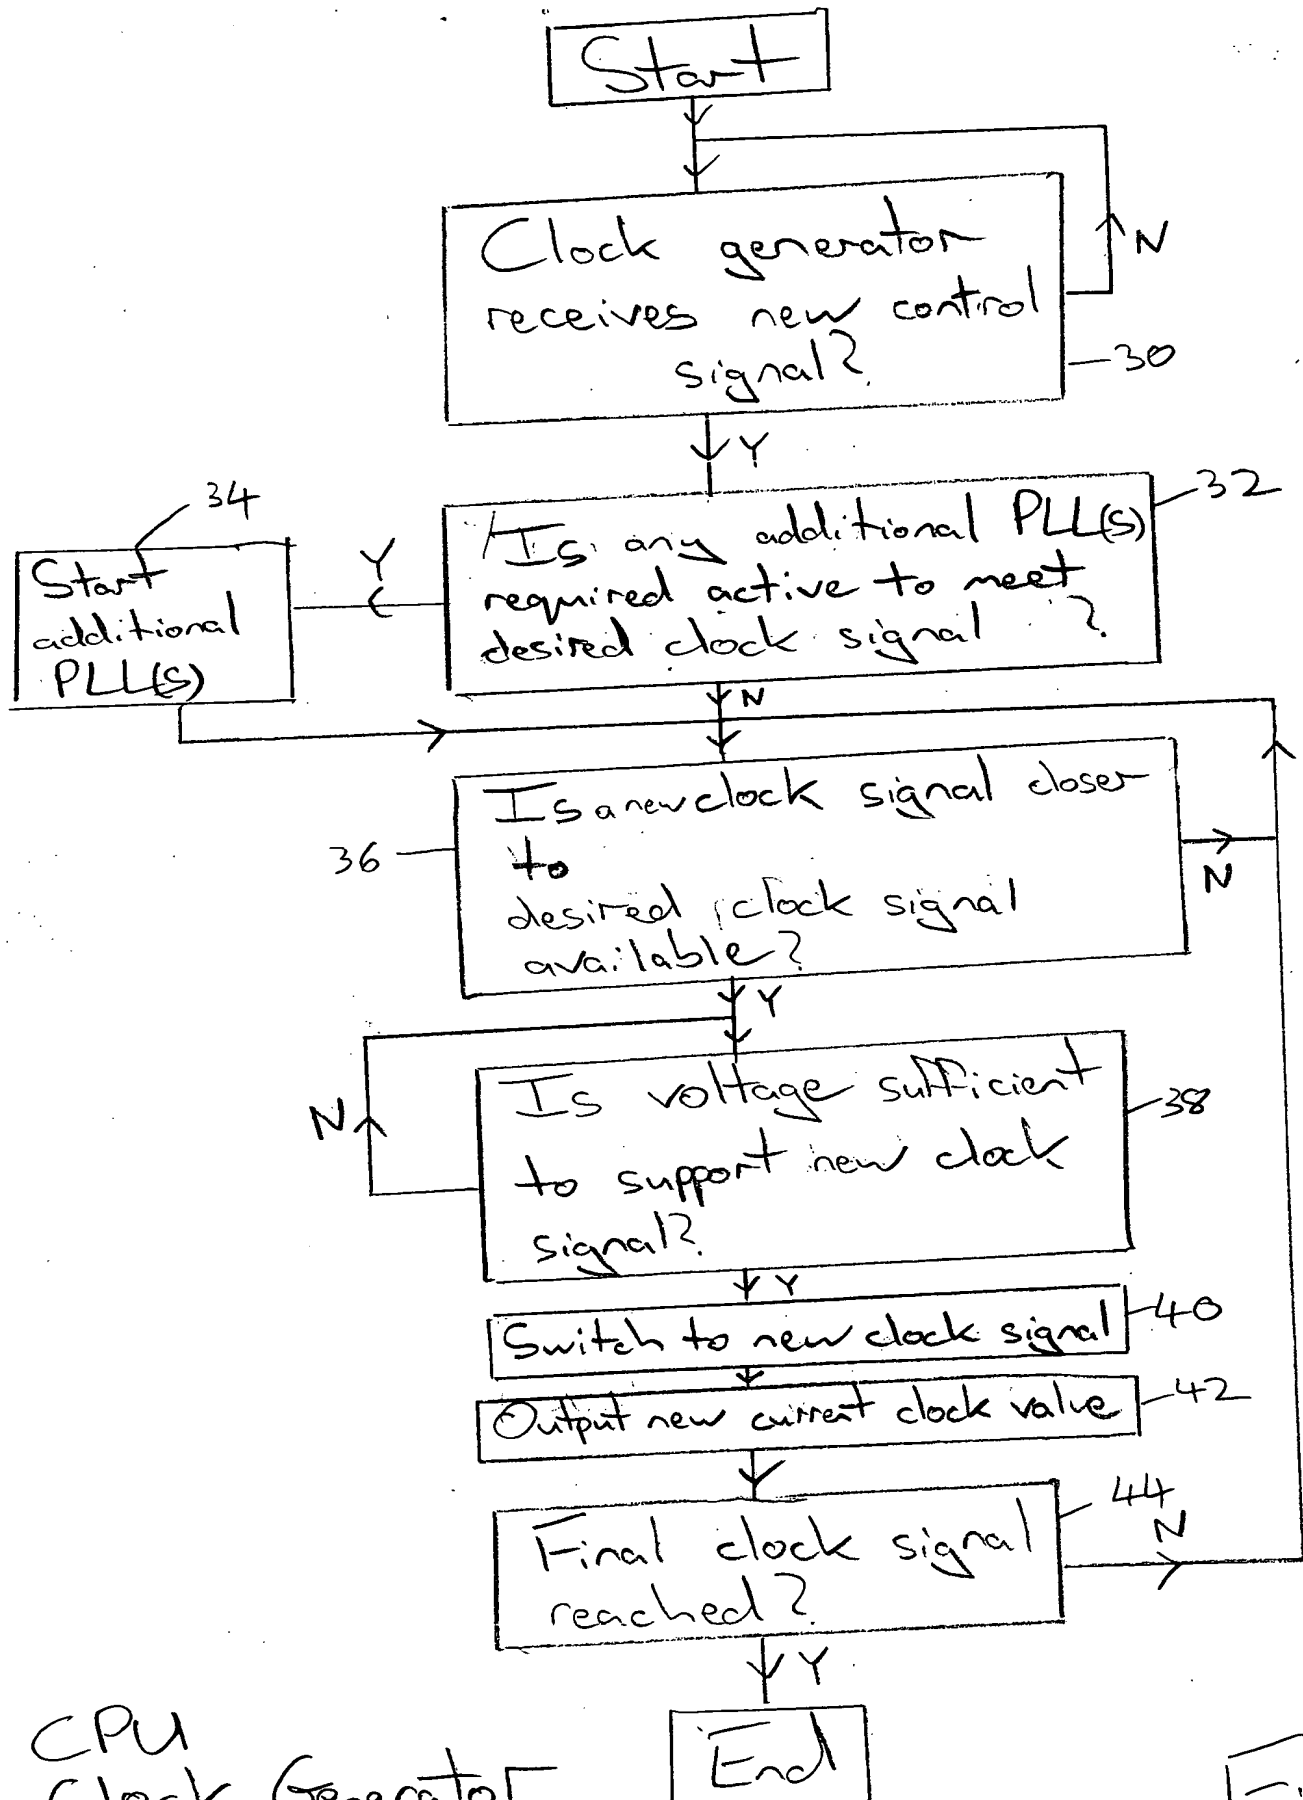 Start
Clock generator
receives new control
signal?
N
30
Y
34
32
Start
additional
PLL(s)
Y
Is any additional PLL(s)
required active to meet
desired clock signal ?
N
Is a new clock signal closer
to
desired clock signal
available?
36
N
Y
Is voltage sufficient
to support new clock
signal?
38
N
Y
Switch to new clock signal
40
Output new current clock value
42
Final clock signal
reached?
44
N
Y
End
CPU
Clock Generator